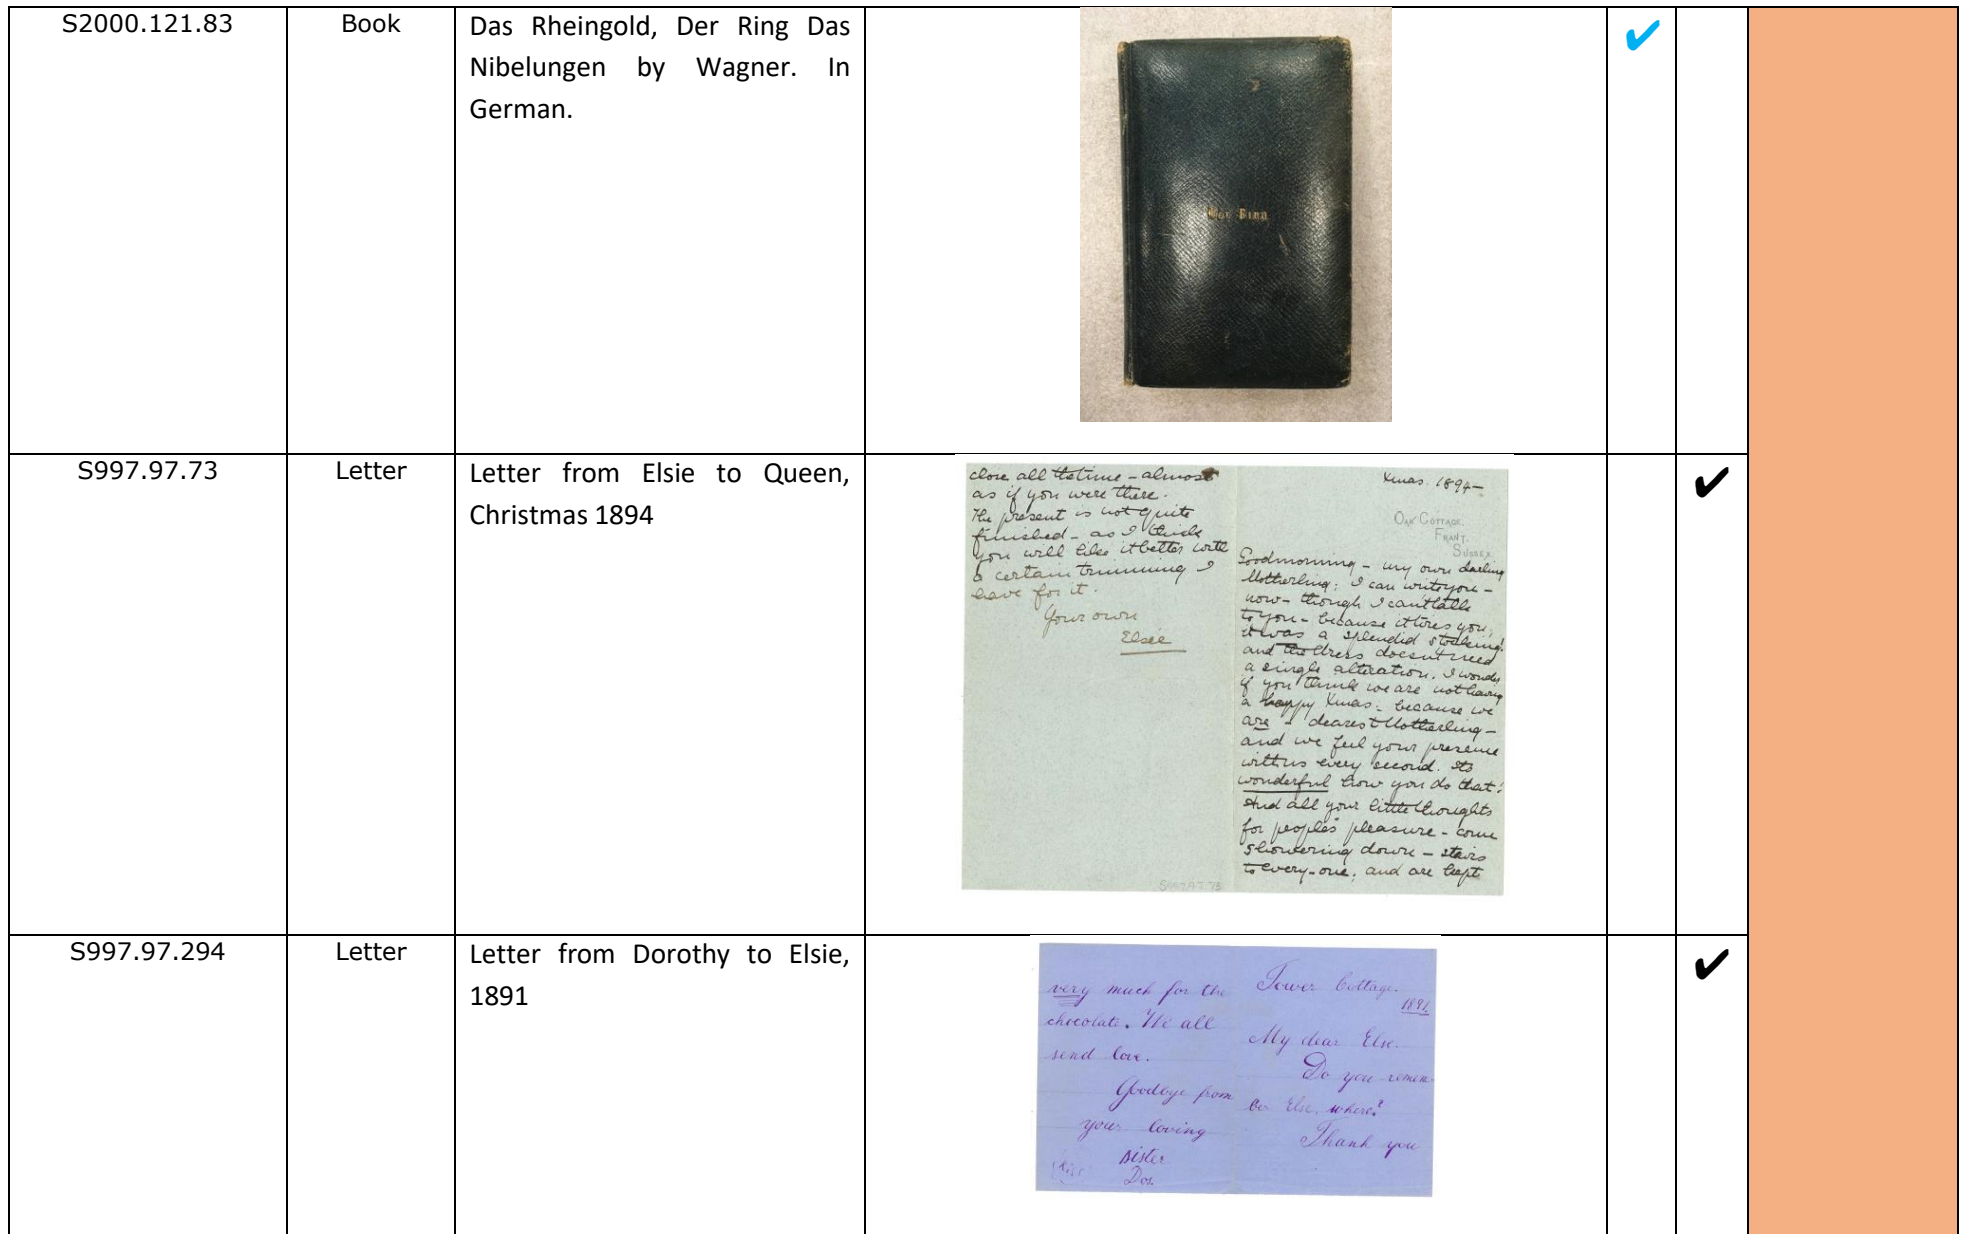 S2000.121.83
Book
Das Rheingold, Der Ring Das
Nibelungen by Wagner. In
German.
Der Ring
✔
S997.97.73
Letter
Letter from Elsie to Queen,
Christmas 1894
close all the time – almost
as if you were there.
The present is not quite
finished – as I think
you will like it better with
a certain trimming I
have for it.
Your own
Elsie
S997.97.73
Xmas. 1894 –
OAK COTTAGE.
FRANT.
SUSSEX.
Goodmorning – my own darling
Motherling; I can write you –
now – though I can't talk
to you – because it tires you;
it was a splendid stocking!
and the dress doesn't need
a single alteration. I wonder
if you think we are not having
a happy Xmas – because we
are – dearest Motherling –
and we feel your presence
with us every second. Its
wonderful how you do that!
And all your little thoughts
for people's pleasure – come
showering down – stairs
to every-one; and are kept
✔
S997.97.294
Letter
Letter from Dorothy to Elsie,
1891
very much for the
chocolate. We all
send love.
Goodbye from
your loving
sister
Dos.
Tower Cottage.
1891.
My dear Else.
Do you remem-
ber Else, where?
Thank you
✔